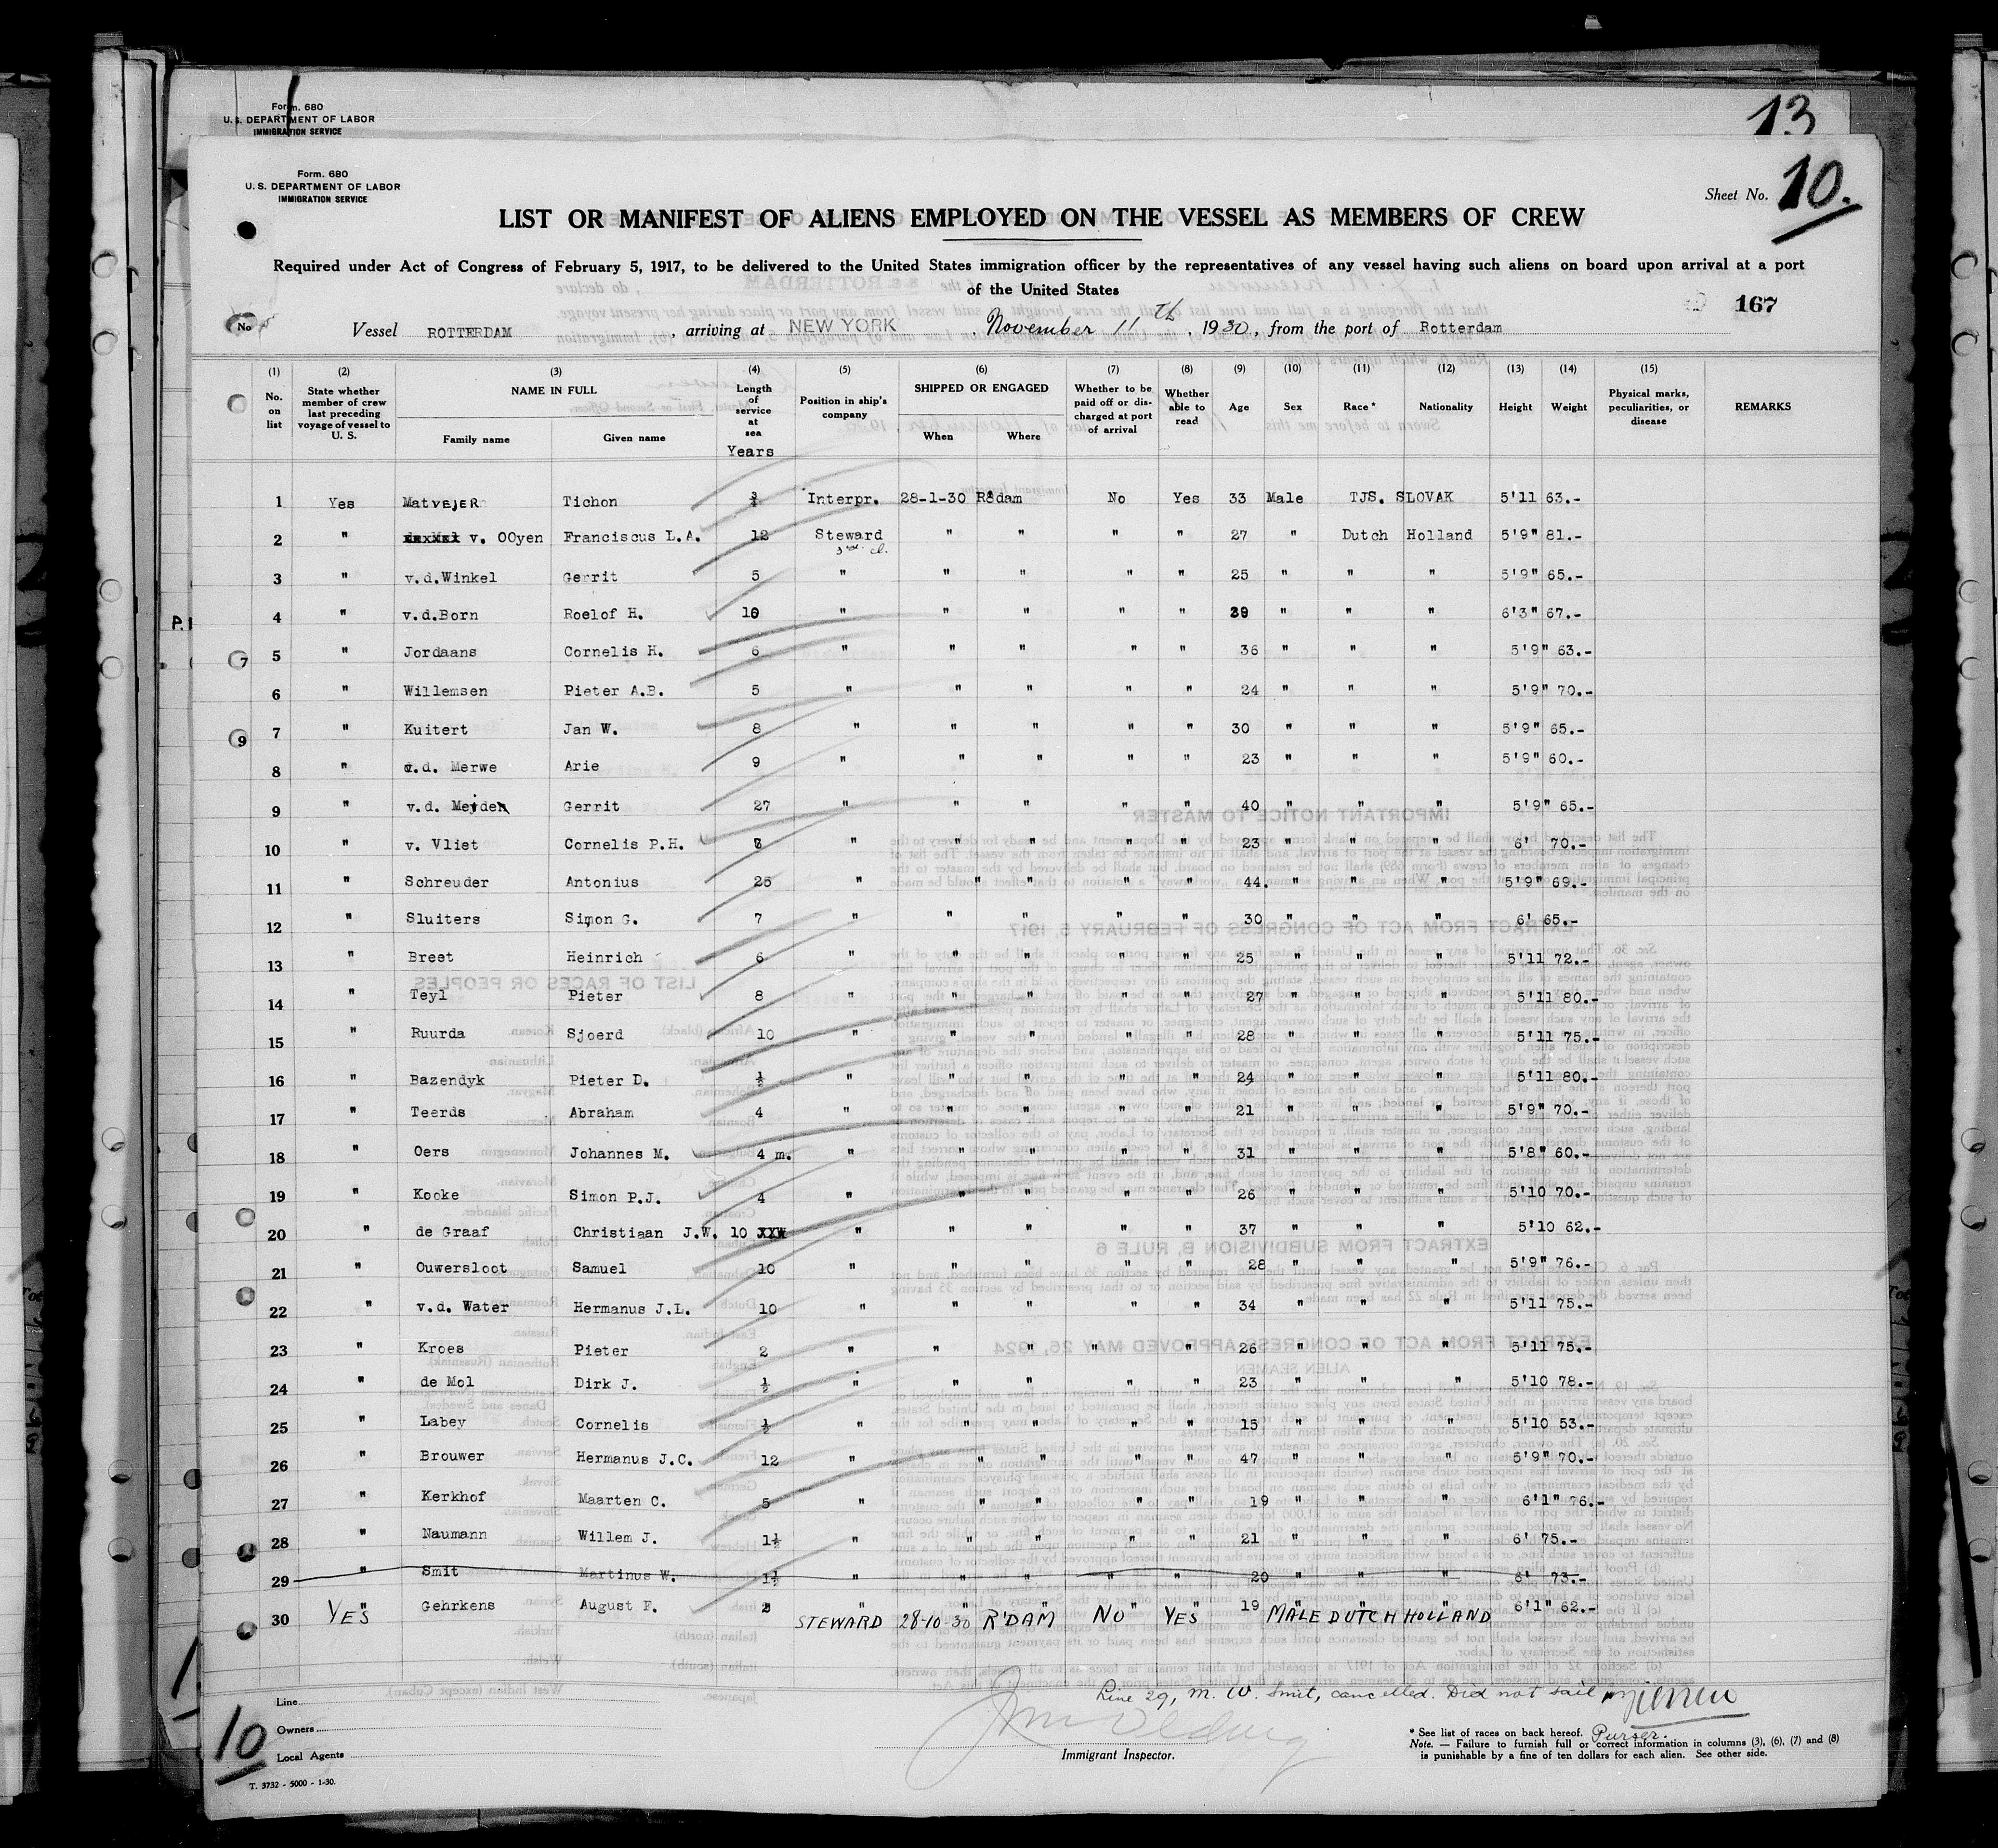 Form. 680
U. S. DEPARTMENT OF LABOR
IMMIGRATION SERVICE
13
Form. 680
U. S. DEPARTMENT OF LABOR
IMMIGRATION SERVICE
Sheet No. 10.
LIST OR MANIFEST OF ALIENS EMPLOYED ON THE VESSEL AS MEMBERS OF CREW
Required under Act of Congress of February 5, 1917, to be delivered to the United States immigration officer by the representatives of any vessel having such aliens on board upon arrival at a port
of the United States
167
No
Vessel ROTTERDAM, arriving at NEW YORK, November 11th, 1930, from the port of Rotterdam
(1) No. on list (2) State whether member of crew last preceding voyage of vessel to U. S. (3) NAME IN FULL Family name Given name (4) Length of service at sea Years (5) Position in ship's company (6) SHIPPED OR ENGAGED When Where (7) Whether to be paid off or discharged at port of arrival (8) Whether able to read (9) Age (10) Sex (11) Race* (12) Nationality (13) Height (14) Weight (15) Physical marks, peculiarities, or disease REMARKS
1 Yes MatvejER Tichon Interpr. 28-1-30 R'dam No Yes 33 Male TJS. SLOVAK 5'11 63.-
2 " v. OOyen Franciscus L.A. 12 Steward 3rd cl. " " " " 27 " Dutch Holland 5'9" 81.-
3 " v.d.Winkel Gerrit 5 " " " " " 25 " " " 5'9" 65.-
4 " v.d.Born Roelof H. 10 " " " " " 39 " " " 6'3" 67.-
5 " Jordaans Cornelis H. 6 " " " " " 36 " " " 5'9" 63.-
6 " Willemsen Pieter A.B. 5 " " " " " 24 " " " 5'9" 70.-
7 " Kuitert Jan W. 8 " " " " " 30 " " " 5'9" 65.-
8 " v.d. Merwe Arie 9 " " " " " 23 " " " 5'9" 60.-
9 " v.d. Meyden Gerrit 27 " " " " " 40 " " " 5'9" 65.-
10 " v. Vliet Cornelis P.H. " " " " " 23 " " " 6' 70.-
11 " Schreuder Antonius 25 " " " " " 44. " " " 5'9" 69.-
12 " Sluiters Simon G. 7 " " " " " 30 " " " 6' 65.-
13 " Breet Heinrich 6 " " " " " 25 " " " 5'11 72.-
14 " Teyl Pieter 8 " " " " " 27 " " " 5'11 80.-
15 " Ruurda Sjoerd 10 " " " " " 28 " " " 5'11 75.-
16 " Bazendyk Pieter D. ½ " " " " " 24 " " " 5'11 80.-
17 " Teerds Abraham 4 " " " " " 21 " " " 5'9" 70.-
18 " Oers Johannes M. 4 m. " " " " " 31 " " " 5'8" 60.-
19 " Kooke Simon P.J. 4 " " " " " 26 " " " 5'10 70.-
20 " de Graaf Christiaan J.W. 10 " " " " " 37 " " " 5'10 62.-
21 " Ouwersloot Samuel 10 " " " " " 28 " " " 5'9" 76.-
22 " v.d. Water Hermanus J.L. 10 " " " " " 34 " " " 5'11 75.-
23 " Kroes Pieter 2 " " " " " 26 " " " 5'11 75.-
24 " de Mol Dirk J. ½ " " " " " 23 " " " 5'10 78.-
25 " Labey Cornelis ½ " " " " " 15 " " " 5'10 53.-
26 " Brouwer Hermanus J.C. 12 " " " " " 47 " " " 5'9" 70.-
27 " Kerkhof Maarten C. 5 " " " " " 19 " " " 6'1" 76.-
28 " Naumann Willem J. 1½ " " " " " 21 " " " 6' 75.-
29 " Smit Martinus W. 1½ " " " " " 20 " " " 6' 73.-
30 YES Gehrkens August F. 2 STEWARD 28-10-30 R'DAM NO YES 19 MALE DUTCH HOLLAND 6'1" 62.-
Line 29, M. W. Smit, cancelled. Did not sail
Purser.
10
Line
Owners
Local Agents
Immigrant Inspector.
* See list of races on back hereof.
Note. — Failure to furnish full or correct information in columns (3), (6), (7) and (8)
is punishable by a fine of ten dollars for each alien. See other side.
T. 3732 - 5000 - 1-30.